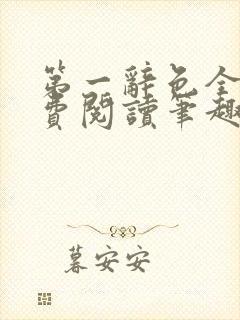 第一辭色全
費閱讀筆趣
暮安安